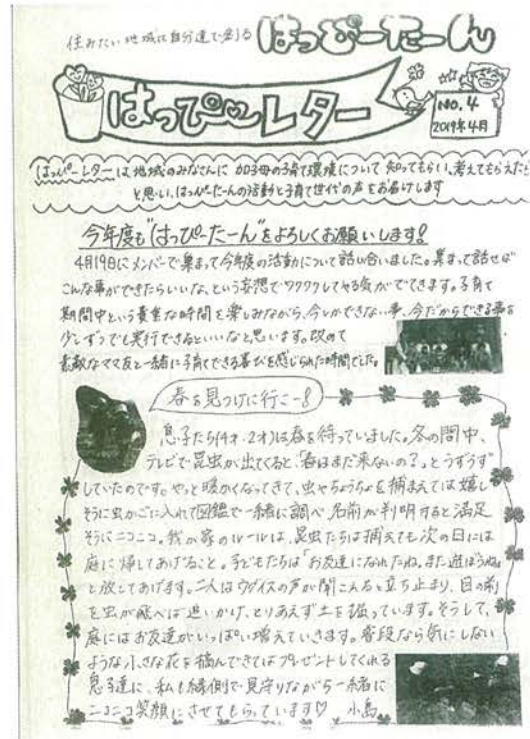 住みたい地域は自分達で創る はっぴーたーん
はっぴ〜レター
NO.4
2019年4月
はっぴーレターは地域のみなさんに加子母の子育て環境について知ってもらい、考えてもらえたら
と思い、はっぴーたーんの活動と子育て世代の声をお届けします
今年度も"はっぴーたーん"をよろしくお願いします!
4月19日にメンバーで集まって今年度の活動について話し合いました。集まって話せば
こんな事ができたらいいな、という妄想でワクワクしてやる気がでてきます。子育て
期間中という貴重な時間を楽しみながら、今しかできない事、今だからできる事を
少しずつでも実行できるといいなと思います。改めて
素敵なママ友と一緒に子育てできる喜びを感じられた時間でした。
春を見つけに行こー!
息子たち(4才・2才)は春を待っていました。冬の間中、
テレビで昆虫が出てくると「春はまだ来ないの?」とうずうず
していたのです。やっと暖かくなってきて、虫やちょうちょを捕まえては嬉し
そうに虫かごに入れて図鑑で一緒に調べ、名前が判明すると満足
そうにニコニコ。我が家のルールは、昆虫たちは捕えても次の日には
庭に帰してあげること。子どもたちは「お友達になれたね。また遊ぼうね」
と放してあげます。二人はウグイスの声が聞こえると立ち止まり、目の前
を虫が飛べば追いかけ、とりあえず土を掘っています。そうして、
庭にはお友達がいっぱい増えていきます。普段なら気にしない
ような小さな花を摘んできてはプレゼントしてくれる
息子達に、私も縁側で見守りながら一緒に
ニコニコ笑顔にさせてもらっています♡ 小島